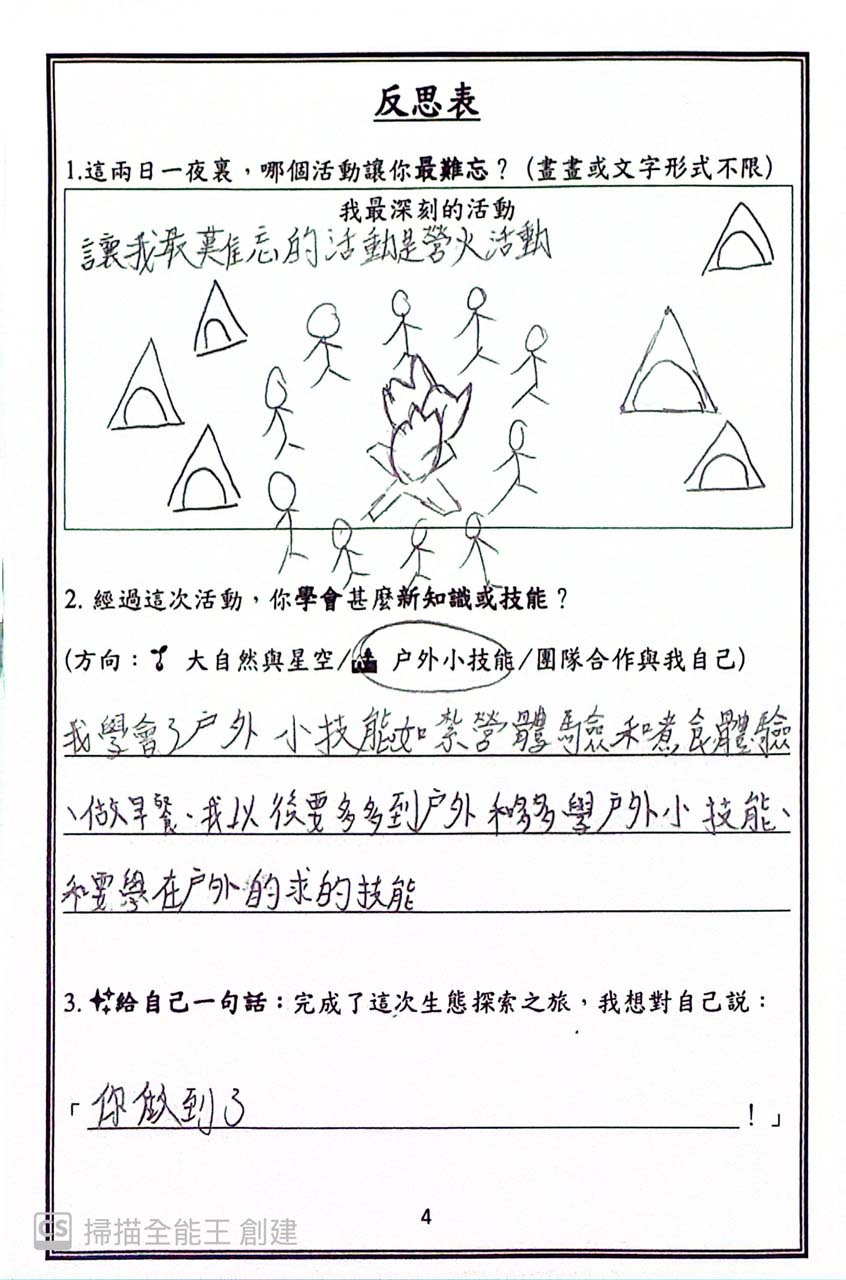 反思表
1.這兩日一夜裏，哪個活動讓你最難忘？(畫畫或文字形式不限)
我最深刻的活動
讓我最難忘的活動是營火活動
2. 經過這次活動，你學會甚麼新知識或技能？
(方向： 大自然與星空/ 户外小技能/團隊合作與我自己)
我學會了户外小技能如紮營體驗和煮食體驗
、做早餐、我以後要多多到户外和多多學户外小技能、
和要學在户外的求的技能
3. 給自己一句話：完成了這次生態探索之旅，我想對自己説：
「你做到了！」
4
CS 掃描全能王 創建